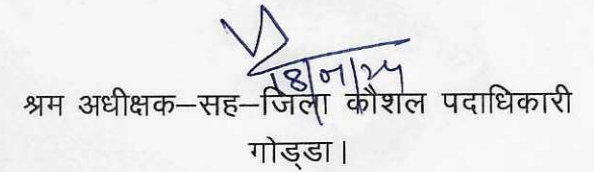 18/01/24
श्रम अधीक्षक–सह–जिला कौशल पदाधिकारी
गोड्डा।